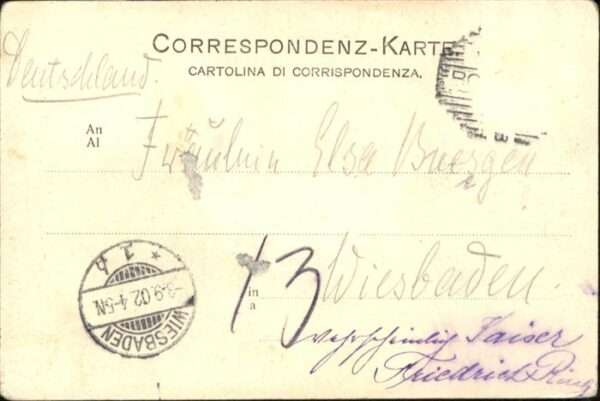 CORRESPONDENZ-KARTE
CARTOLINA DI CORRISPONDENZA.
Deutschland.
An
Al
Fräulein Elsa Buergen
13
in
a
Wiesbaden.
WIESBADEN
3.9.02 4-5N
* 1 b
wahrscheinlich Kaiser
Friedrich Ring